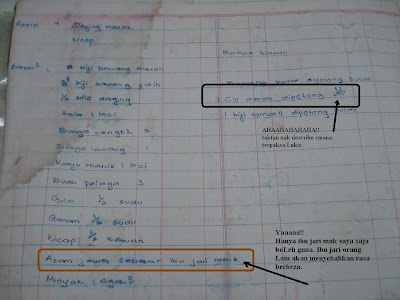 Resipi 4 Daging masak
Kicap
Bahan²,
2 biji bawang merah
2 biji bawang putih
½ kilo daging
halia 1 inci
Bunga Cengkih 3
Bunga lawang 1
Kayu manis 1 inci
Buah pelaga 3
Gula ½ sudu
Garam ½ sudu
Kicap ½ cawan
Asam jawa sebesar ibu jari mak
Minyak, agak²
Bahan hiasan
Bawang besar dipotong bulat
3 Cili merah dipotong
1 biji tomato dipotong bulat
AHAAHAHAHAHA!!
taktau nak describe cmana.
terpaksa Lukis.
Yaaaaa!!
Hanya ibu jari mak saya saja
boLeh guna. Ibu jari orang
Lain akan menyebabkan rasa
berbeza.